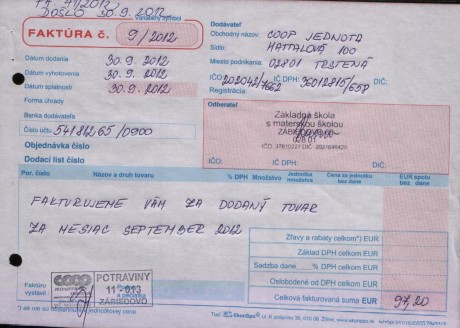 DOŠLO 30.9.2012
Variabilný symbol
FAKTÚRA č. 9/2012
Dodávateľ
Obchodný názov: COOP JEDNOTA
Sídlo: HATTALOVA 100
Miesto podnikania: 02801 TRSTENÁ
IČO: IČ DPH: DIČ:
Registrácia:
Dátum dodania 30.9.2012
Dátum vyhotovenia 30.9.2012
Dátum splatnosti 30.9.2012
Forma úhrady
Banka dodávateľa
Číslo účtu 54181265/0900
Objednávka číslo
Dodací list číslo
Odberateľ
Základná škola
s materskou školou
028 01
IČO: IČ DPH: DIČ:
Por. číslo Názov a druh tovaru % DPH Množstvo Jednotka množstva Cena za jednotku bez dane EUR spolu bez dane
FAKTURUJEME VÁM ZA DODANÝ TOVAR
ZA MESIAC SEPTEMBER 2012
Zľavy a rabaty celkom*) EUR
Základ DPH celkom EUR
Sadzba dane % DPH celkom EUR
Oslobodené od DPH celkom EUR
Celková fakturovaná suma EUR 97,20
Faktúru vystavil
COOP
POTRAVINY
11-013
ZÁBIEDOVO
*) ak nie sú obsiahnuté v jednotkovej cene